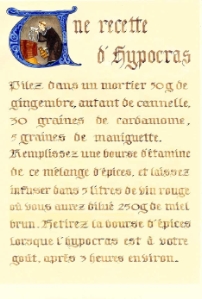 Une recette
d'Hypocras
Pilez dans un mortier 50g de
gingembre, autant de cannelle,
30 graines de cardamome,
5 graines de maniguette.
Remplissez une bourse d'étamine
de ce mélange d'épices, et laissez
infuser dans 5 litres de vin rouge
où vous aurez dilué 250g de miel
brun. Retirez la bourse d'épices
lorsque l'hypocras est à votre
goût, après 3 heures environ.